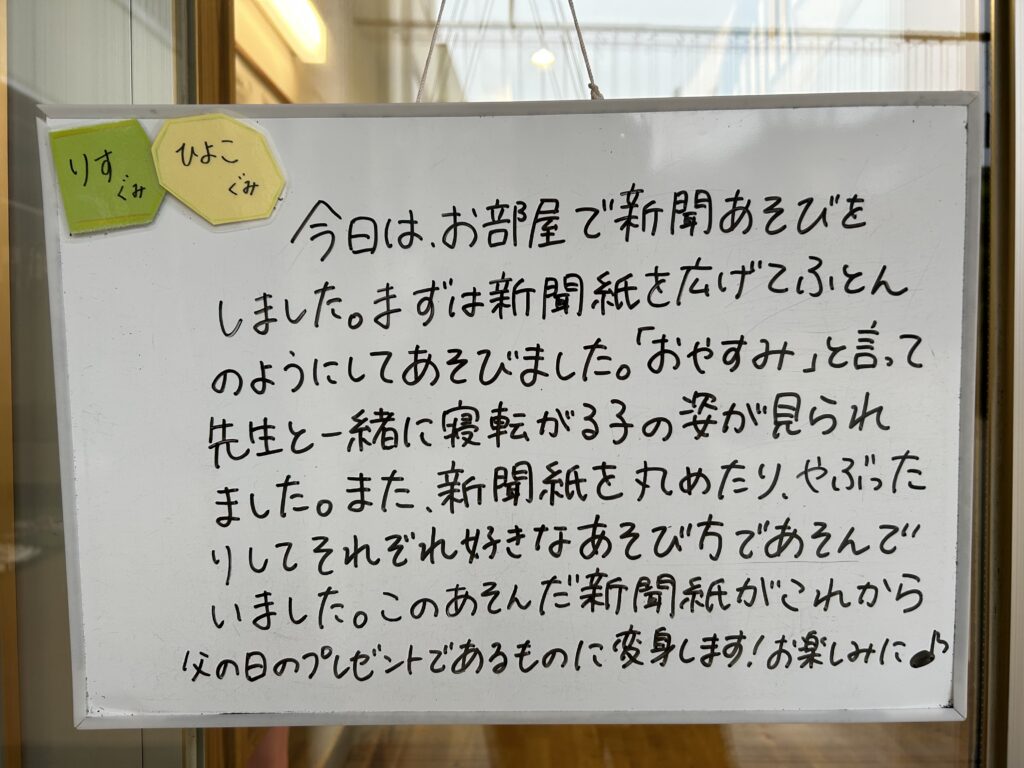 りす
ぐみ
ひよこ
ぐみ
今日は、お部屋で新聞あそびを
しました。まずは新聞紙を広げてふとん
のようにしてあそびました。「おやすみ」と言って
先生と一緒に寝転がる子の姿が見られ
ました。また、新聞紙を丸めたり、やぶった
りしてそれぞれ好きなあそび方であそんで
いました。このあそんだ新聞紙がこれから
父の日のプレゼントであるものに変身します!お楽しみに♪